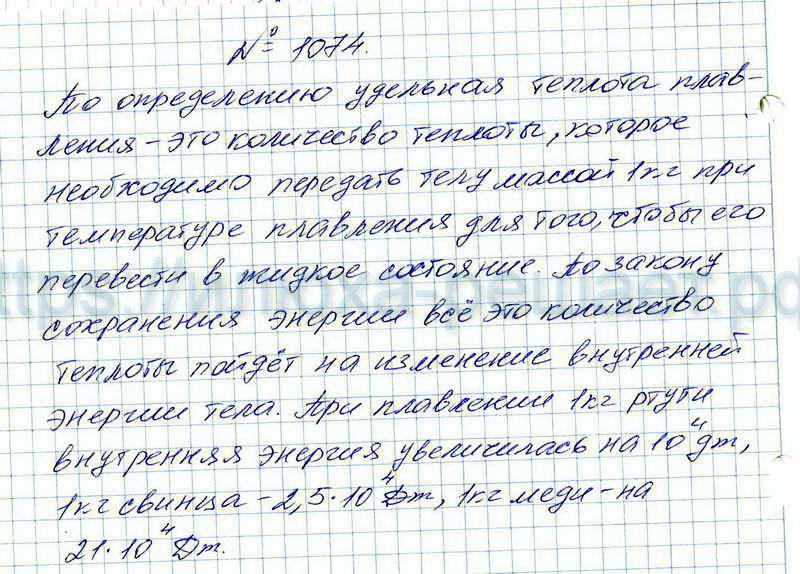 № 1074.
По определению удельная теплота плав-
ления - это количество теплоты, которое
необходимо передать телу массой 1кг при
температуре плавления для того, чтобы его
перевести в жидкое состояние. По закону
сохранения энергии всё это количество
теплоты пойдёт на изменение внутренней
энергии тела. При плавлении 1кг ртути
внутренняя энергия увеличилась на 10⁴ Дж,
1кг свинца - 2,5·10⁴ Дж, 1кг меди - на
21·10⁴ Дж.